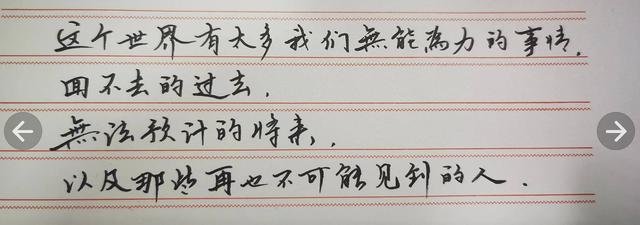 这个世界有太多我们無能為力的事情.
回不去的过去.
無法预计的将来,.
以及那些再也不可能见到的人.